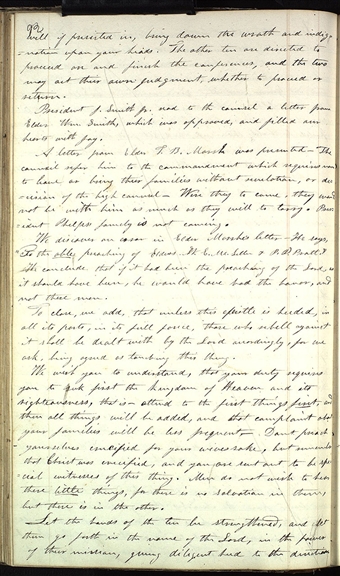 92
will if persisted in, bring down the wrath and indig-
-nation upon your heads. The other ten are directed to
proceed on and finish the conferences, and the two
may act their own judgment, whether to proceed or
return.
President J. Smith jr. read to the council a letter from
Elder Wm Smith, which was approved, and filled our
hearts with joy.
A letter from Elder T. B. Marsh was presented— The
council refer him to the commandment which requires none
to leave or bring their families without revelation, or de-
-cision of the high council— Were they to come, they would
not be with him as much as they will to tarry. Pres-
ident Phelps family is not coming.
We discover an error in Elder Marshe's letter— He says,
"To the able preaching of Elders W. E. McLellin & P. P. Pratt."
We conclude that if it had been the preaching of the Lord, as
it should have been, he would have had the honor, and
not these men.
To close, we add, that unless this epistle is heeded, in
all its parts, in its full force, those who rebell against
it shall be dealt with by the Lord accordingly, for we
ask, being agreed as touching this thing.
We wish you to understand, that your duty requires
you to seek first the kingdom of Heaven and its
righteousness, that is— attend to the first things first, and
then all things will be added, and that complaint about
your families will be less frequent— Don't preach
yourselves crucified for your wives sake, but remember
that Christ was crucified, and you are sent out to be spe-
cial witnesses of this thing. Men do not wish to hear
these little things, for there is no salvation in them,
but there is in the other.
Let the hands of the ten be strengthened, and let
them go forth in the name of the Lord, in the power
of their mission, giving diligent heed to the direction